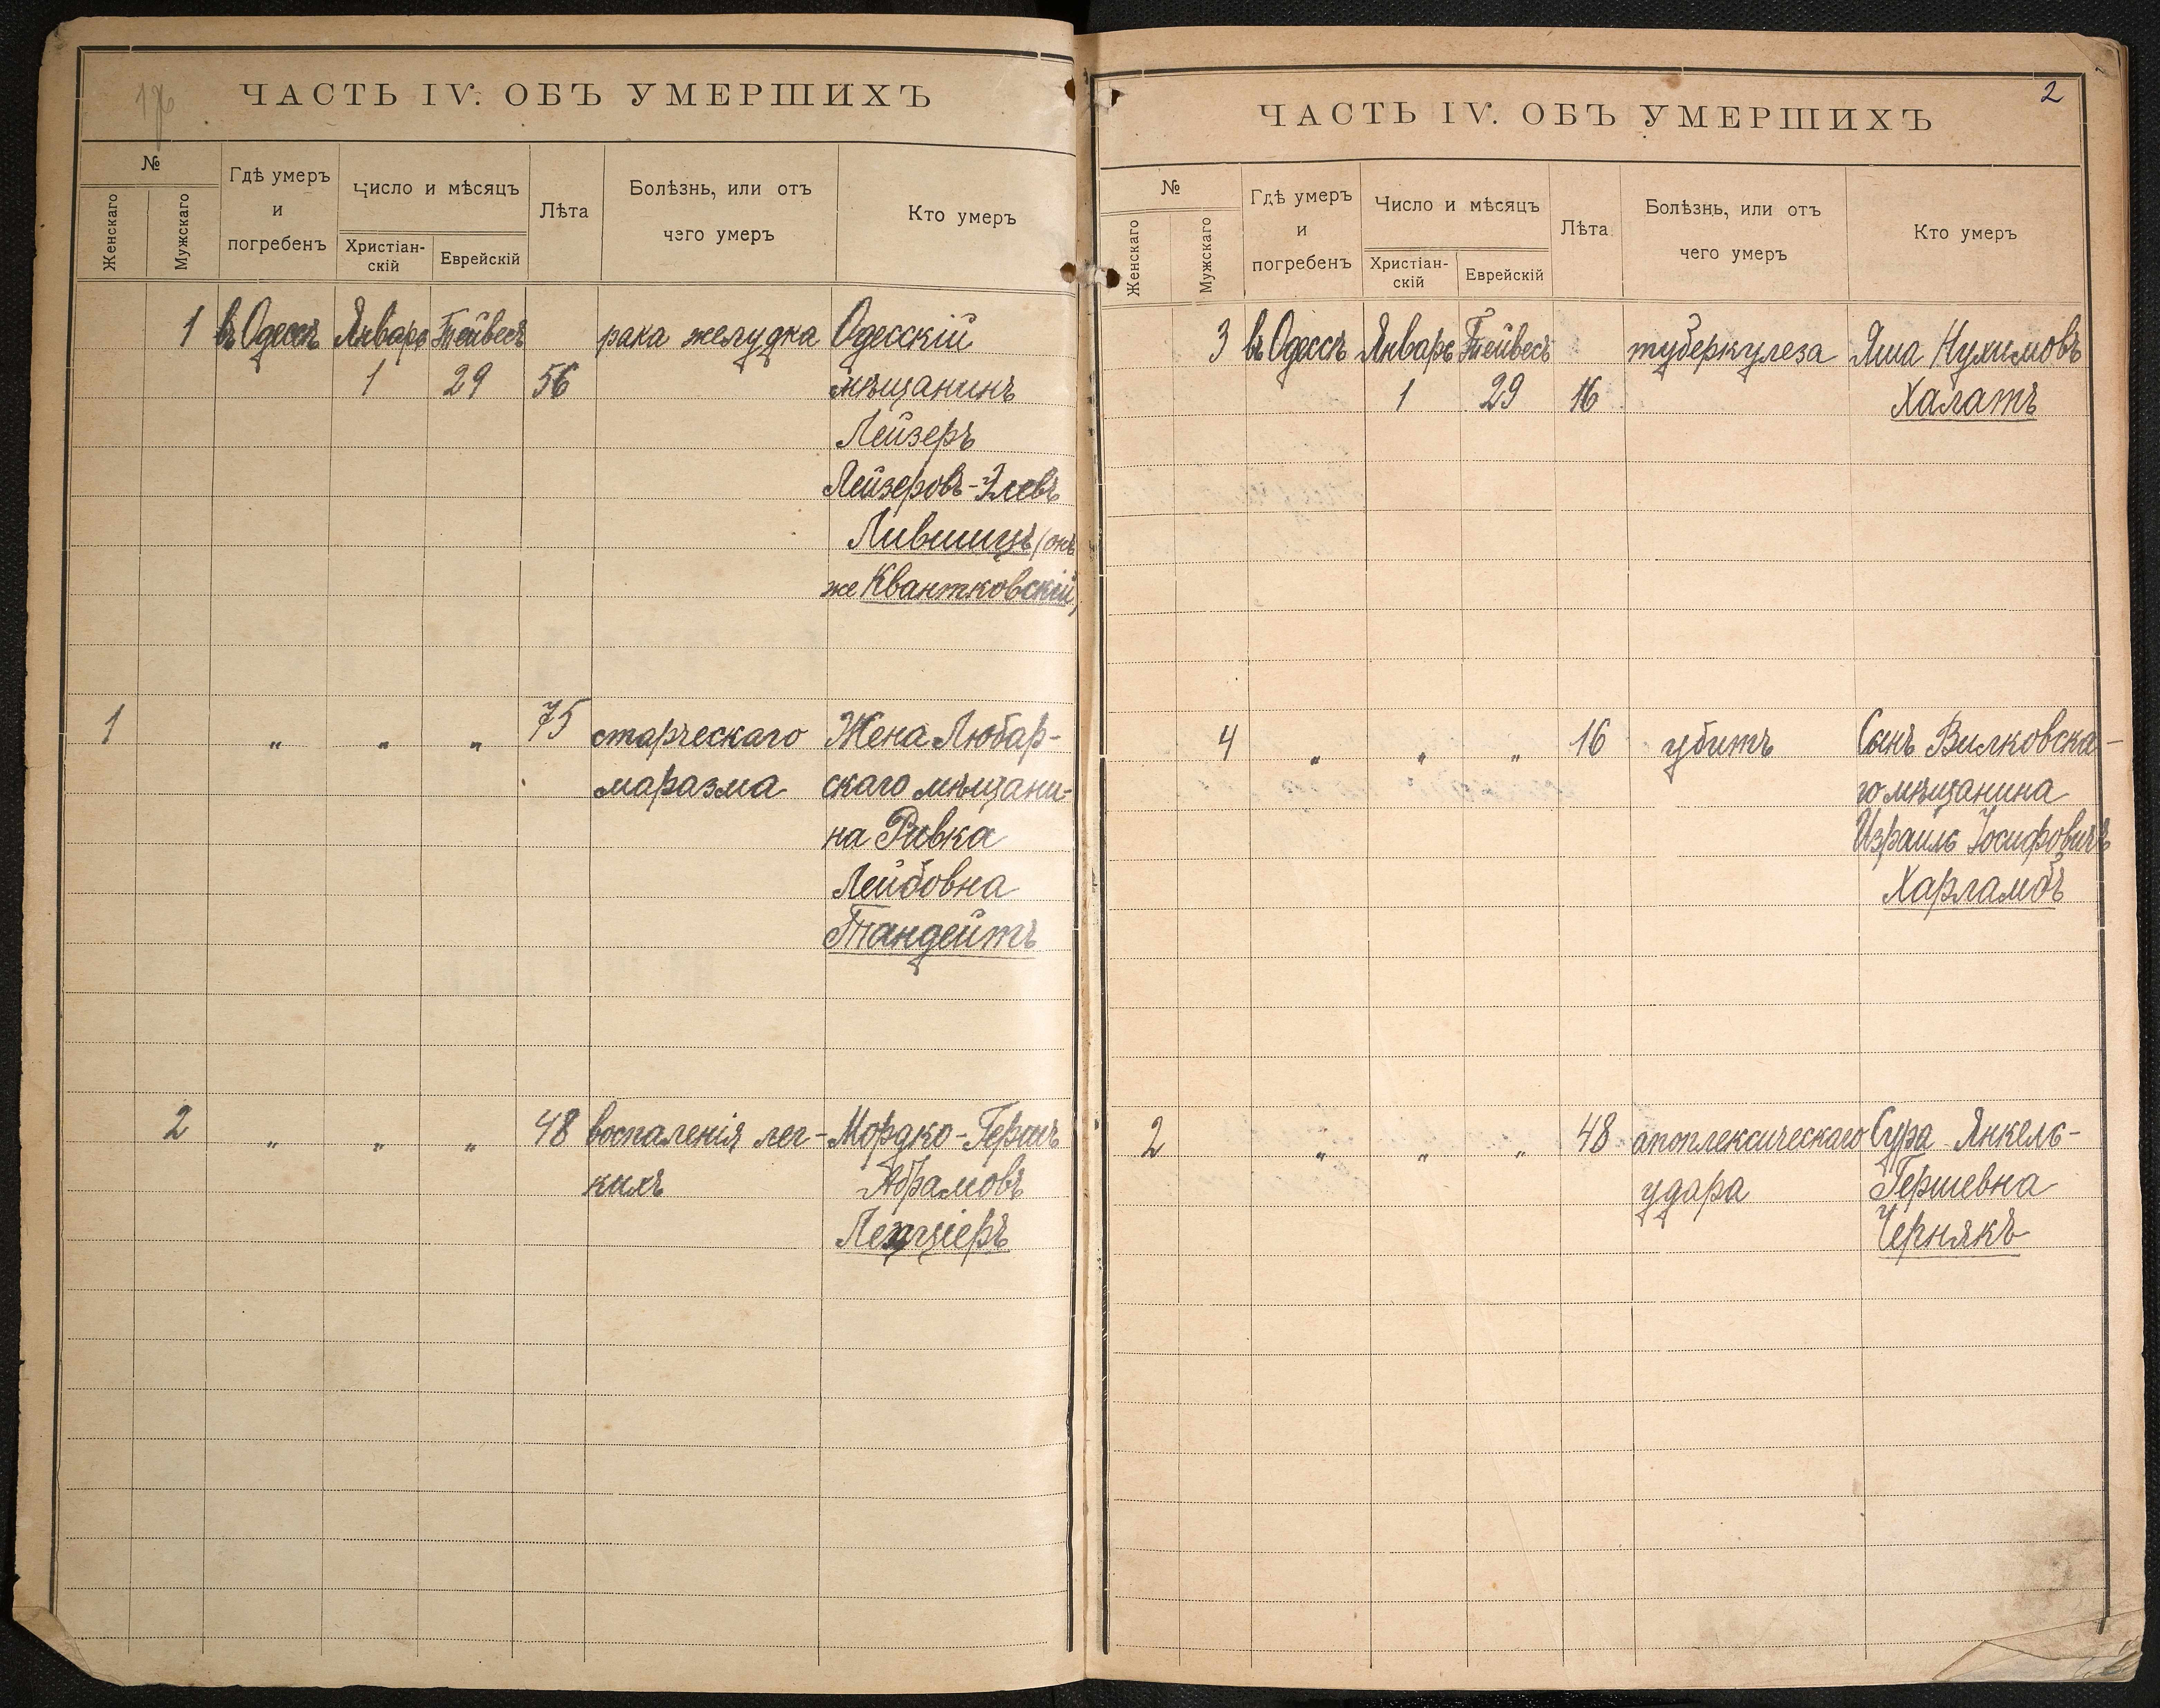 ЧАСТЬ IV. ОБЪ УМЕРШИХЪ
№
Женскаго
Мужскаго
Гдѣ умеръ
и
погребенъ
Число и мѣсяцъ
Христіан-
скій
Еврейскій
Лѣта
Болѣзнь, или отъ
чего умеръ
Кто умеръ
1 въ Одессѣ Январь Тейвесъ рака желудка Одесскій
1 29 56 мѣщанинъ
Лейзеръ
Лейзеровъ-
Лившицъ (онъ
же Квантковскій)
1 " " " 75 старческаго Жена Любар-
маразма скаго мѣщани-
на Ривка
Лейбовна
Тандейтъ
2 " " " 48 воспаленія лег- Мордко-Гершъ
кихъ Абрамовъ
ЧАСТЬ IV. ОБЪ УМЕРШИХЪ
2
№
Женскаго
Мужскаго
Гдѣ умеръ
и
погребенъ
Число и мѣсяцъ
Христіан-
скій
Еврейскій
Лѣта
Болѣзнь, или отъ
чего умеръ
Кто умеръ
3 въ Одессѣ Январь Тейвесъ туберкулеза Яша Нухимовъ
1 29 16 Халатъ
4 " " " 16 убитъ Сынъ Вилковска-
го мѣщанина
Израиль Іосифовичъ
Харламбъ
2 " " " 48 апоплексическаго Сура Янкель-
удара Гершевна
Чернякъ